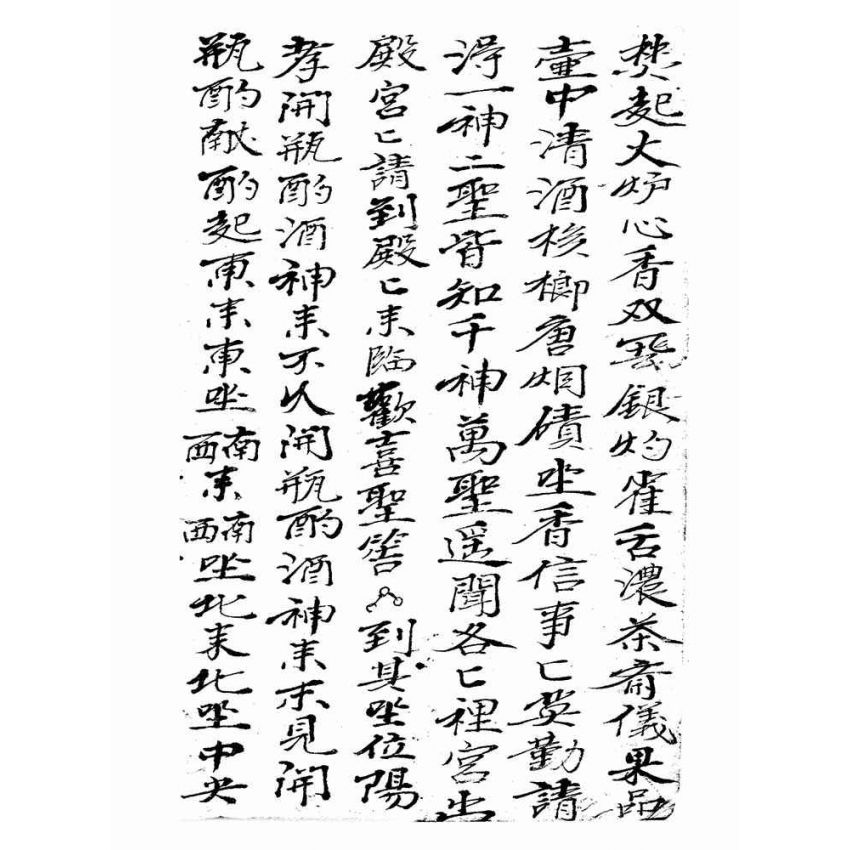 焚起火炉心香双飛銀灼雀舌濃茶斎儀果品
壷中清酒梹榔唐烟磧坐香信事匕英勤請
淂一神二聖皆知千神萬聖遥聞各匕裡宮出
殿宮匕請到殿匕耒臨歡喜聖筶到其坐位陽
孝開瓶酌酒神耒不以開瓶酌酒神耒未見開
瓶酌献酌起東耒東坐西南耒西南坐北耒北坐中央